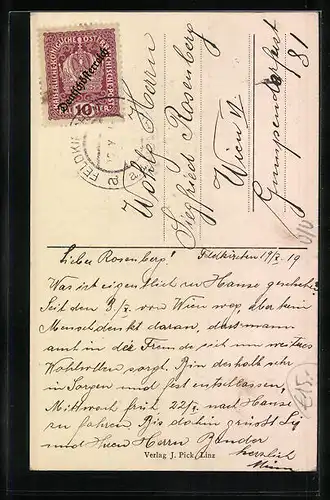 KAISERLICHE KÖNIGLICHE ÖSTERR. POST
Deutschösterreich
10 HELLER
FELDKIR
Wohlg. Herrn
Siegfried Rosenberg
Wien VI.
Gumpendorferst
81
Lieber Rosenberg! Feldkirchen 19/X. 19
Was ist eigentlich zu Hause geschehen?
Seit den 8./X. von Wien weg, aber kein
Mensch denkt daran, dass mann
amt in die Fremde sich um weitres
Wohlwollen sorgt. Bin deshalb sehr
in Sorgen und fest entschlossen,
Mittwoch früh 22/X. nach Hause
zu fahren. Bis dahin grüsst Sie
und Ihren Herrn Bruder
herzlich
Verlag J. Pick, Linz